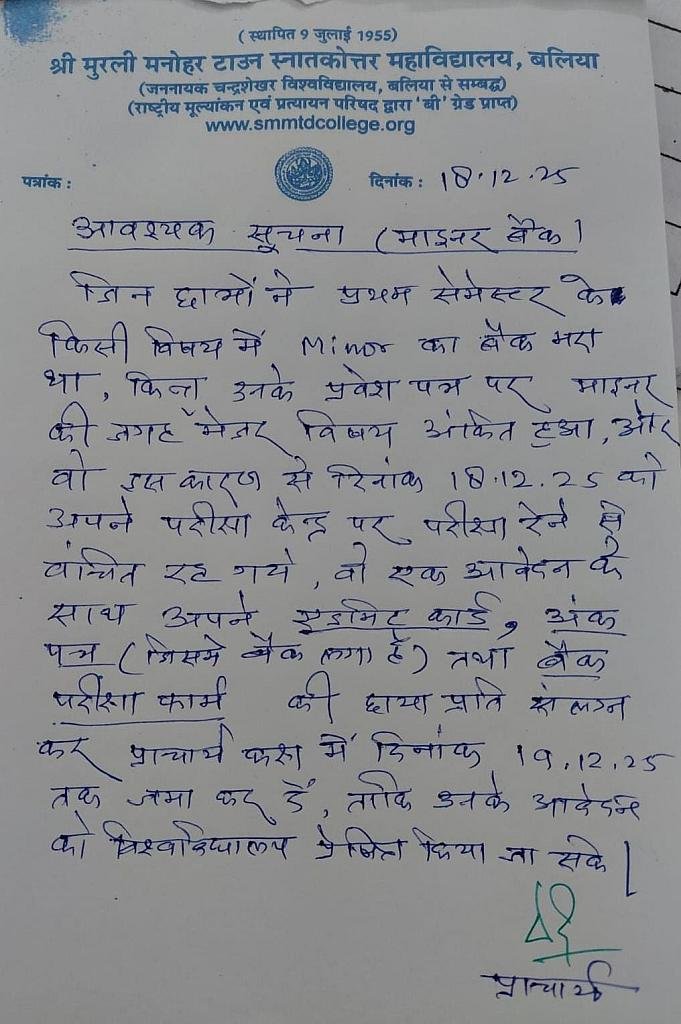 ( स्थापित 9 जुलाई 1955)
श्री मुरली मनोहर टाउन स्नातकोत्तर महाविद्यालय, बलिया
(जननायक चन्द्रशेखर विश्वविद्यालय, बलिया से सम्बद्ध)
(राष्ट्रीय मूल्यांकन एवं प्रत्यायन परिषद द्वारा 'बी' ग्रेड प्राप्त)
www.smmtdcollege.org
पत्रांक : दिनांक : 18.12.25
आवश्यक सूचना (माइनर बैक)
जिन छात्रों ने प्रथम सेमेस्टर के
किसी विषय में Minor का बैक भरा
था, किन्तु उनके प्रवेश पत्र पर माइनर
की जगह मेजर विषय अंकित हुआ, और
वो इस कारण से दिनांक 18.12.25 को
अपने परीक्षा केन्द्र पर परीक्षा देने से
वंचित रह गये, वो एक आवेदन के
साथ अपने एडमिट कार्ड, अंक
पत्र (जिसमे बैक लगा है) तथा बैक
परीक्षा फार्म की छाया प्रति संलग्न
कर प्राचार्य कक्ष में दिनांक 19.12.25
तक जमा कर दें, ताकि उनके आवेदन
को विश्वविद्यालय प्रेषित किया जा सके|
प्राचार्य